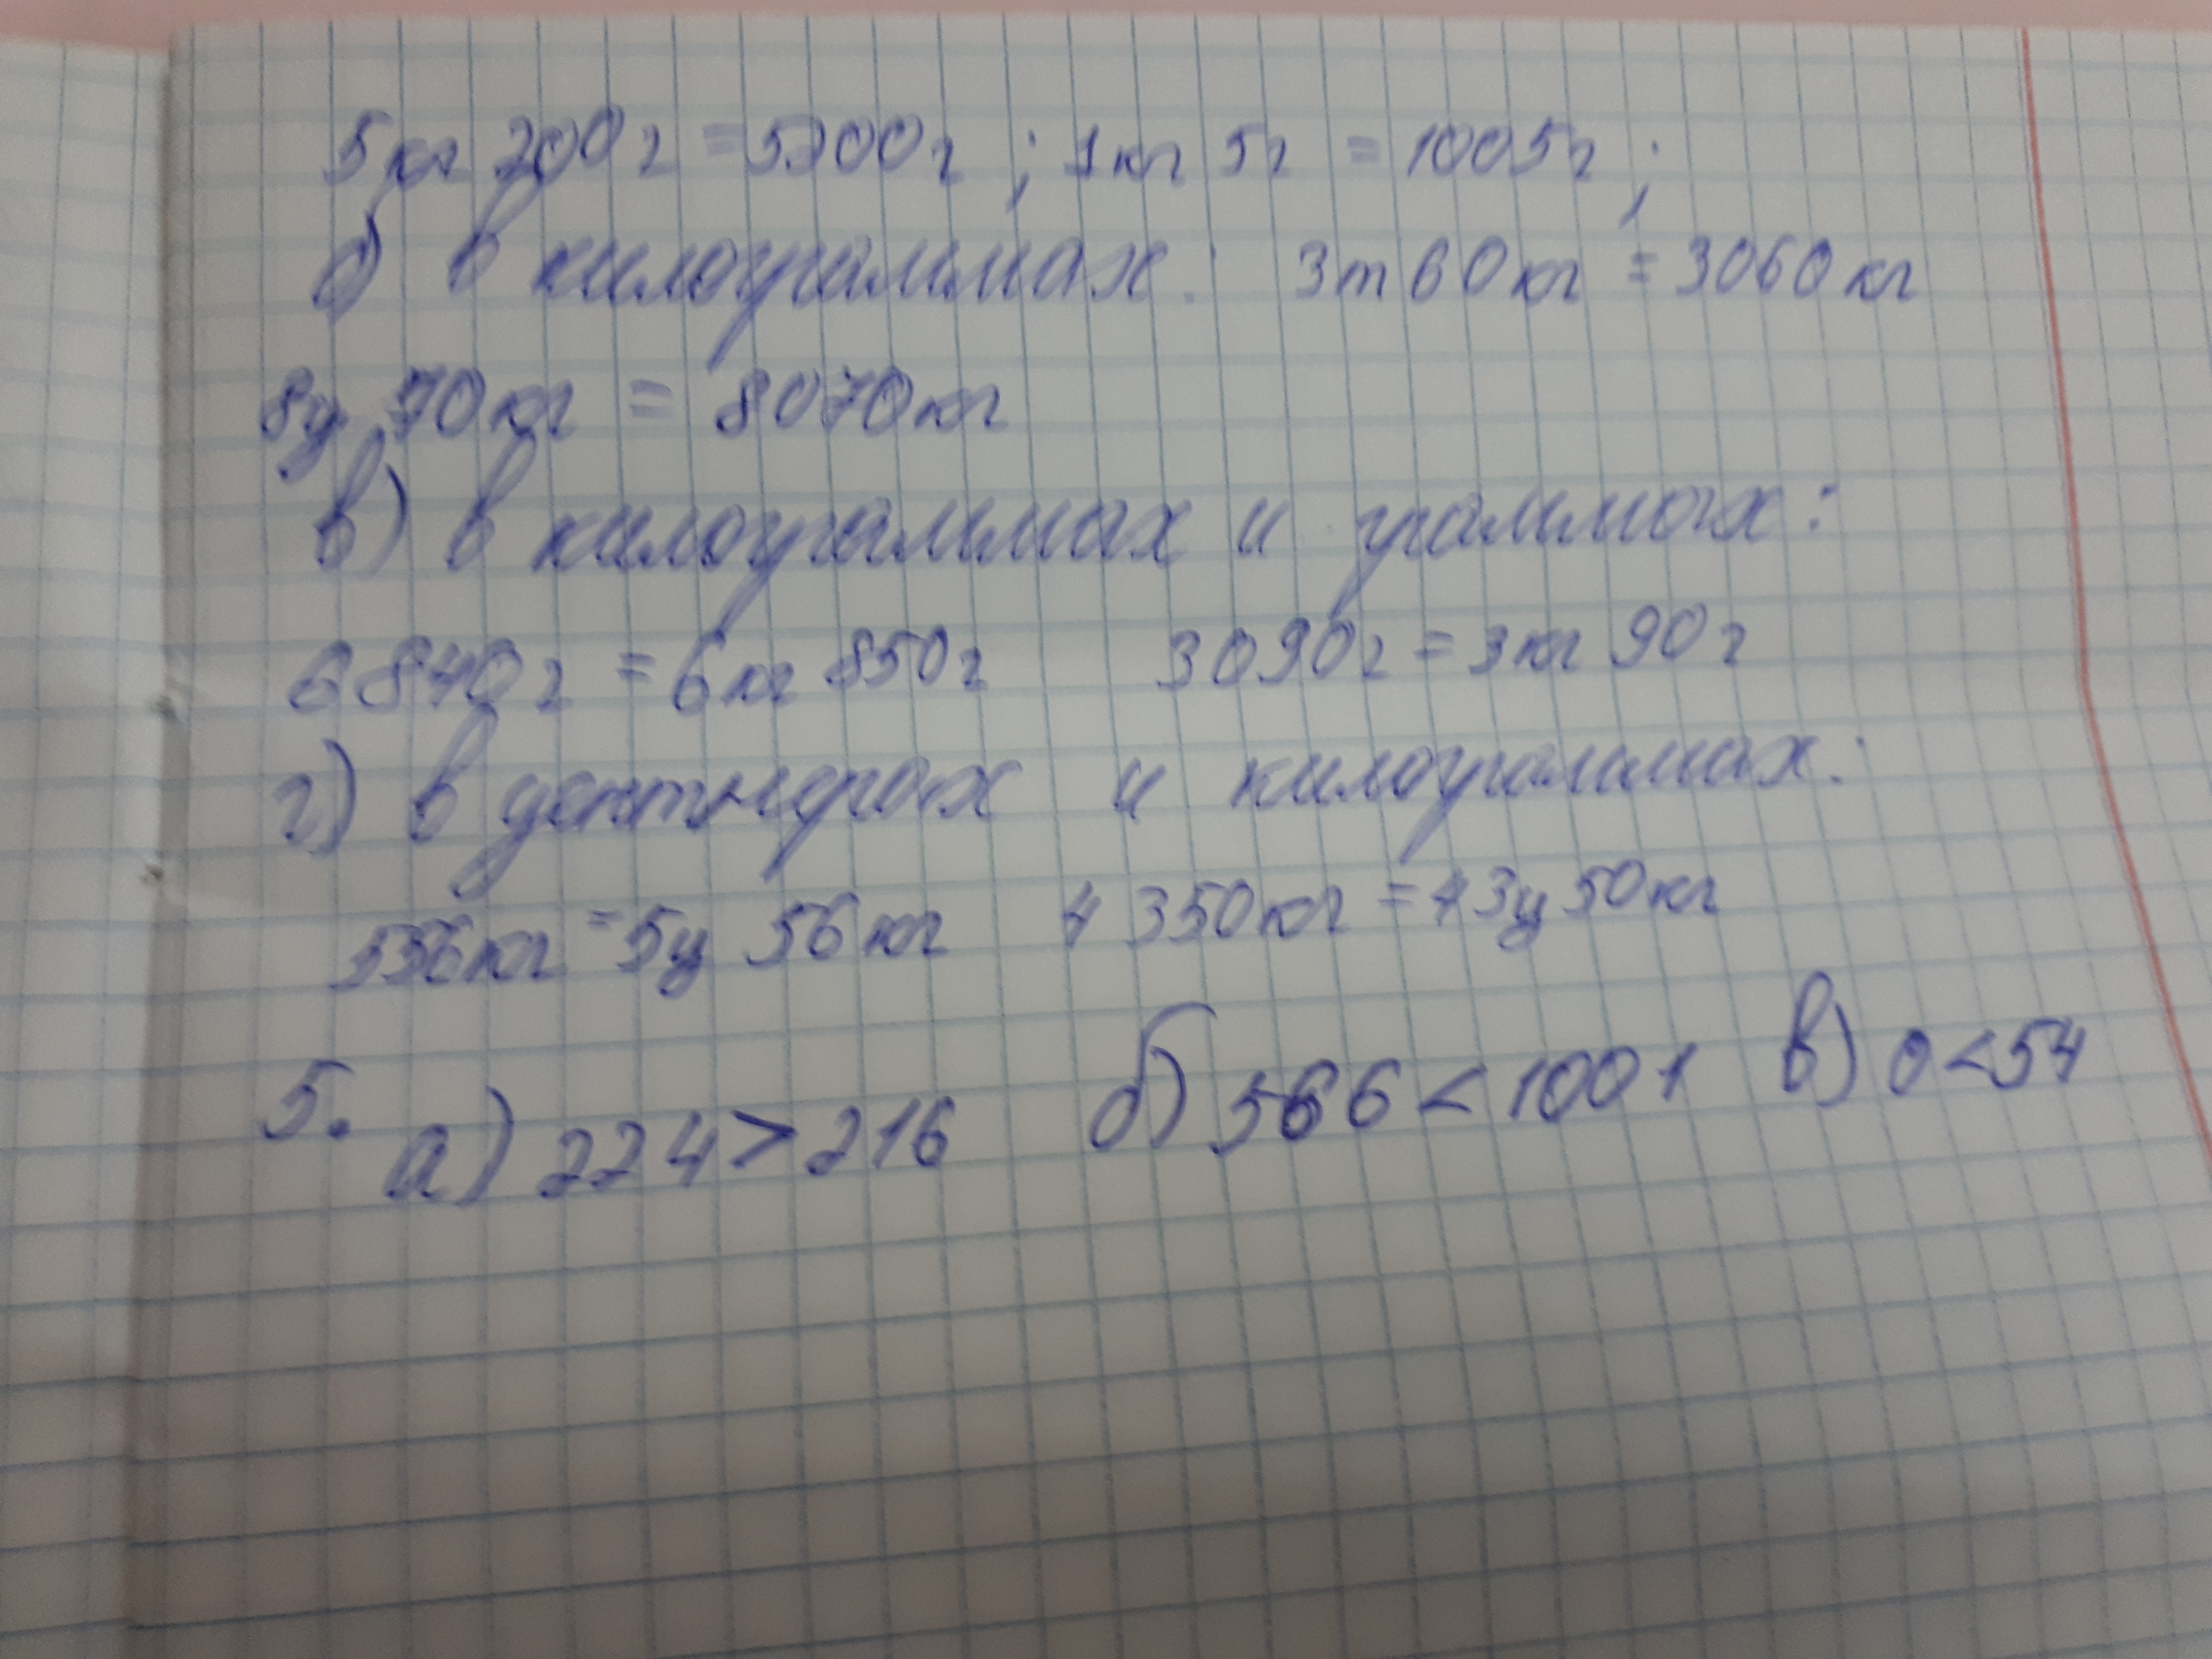 5кг 200г = 5200г ; 1кг 5г = 1005г ;
б) в килограммах: 3т 60кг = 3060кг
8ц 70кг = 8070кг
в) в килограммах и граммах:
6840г = 6кг 850г 3090г = 3кг 90г
г) в центнерах и килограммах:
556кг = 5ц 56кг 4350кг = 43ц 50кг
5. а) 224 > 216 б) 566 < 1001 в) 0 < 54